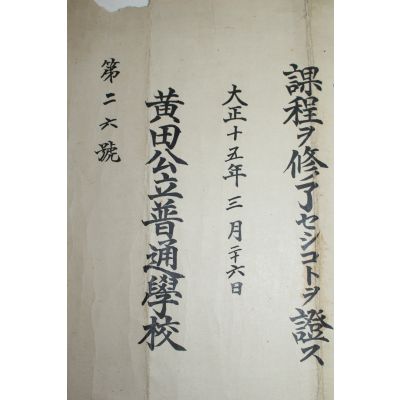 課程ヲ修了セシコトヲ證ス
大正十五年三月二十六日
黃田公立普通學校
第二六號